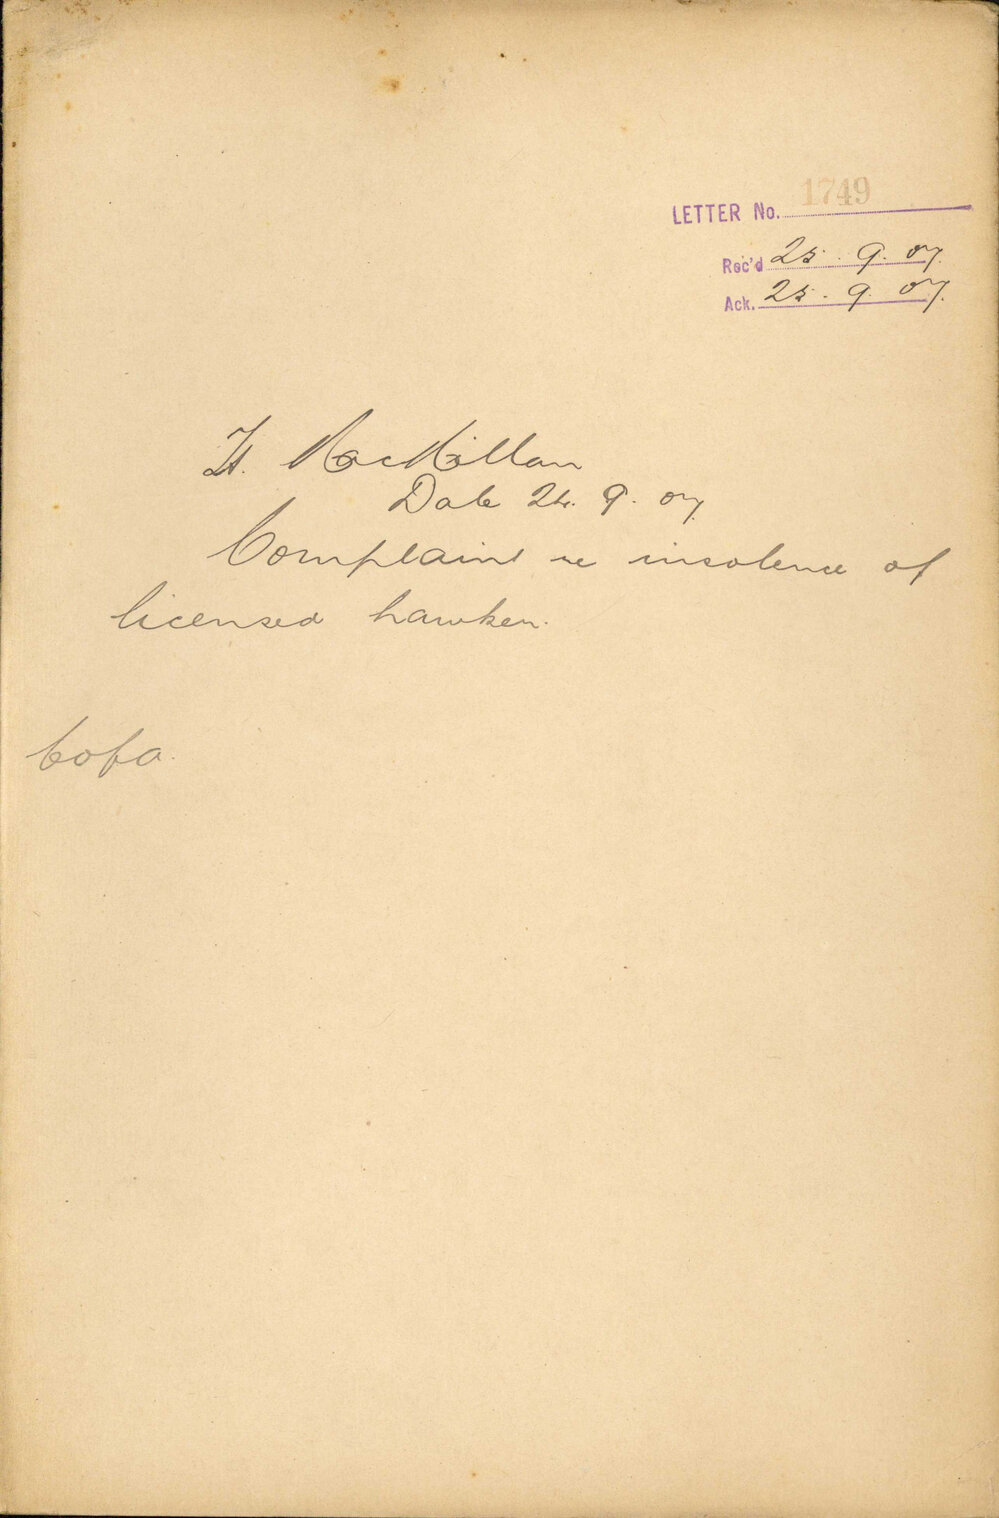 LETTER No. 1749
Rec'd 25. 9. 07.
Ack. 25. 9. 07.
H. MacMillan
Date 24. 9. 07.
Complaint re insolence of
licensed hawker.